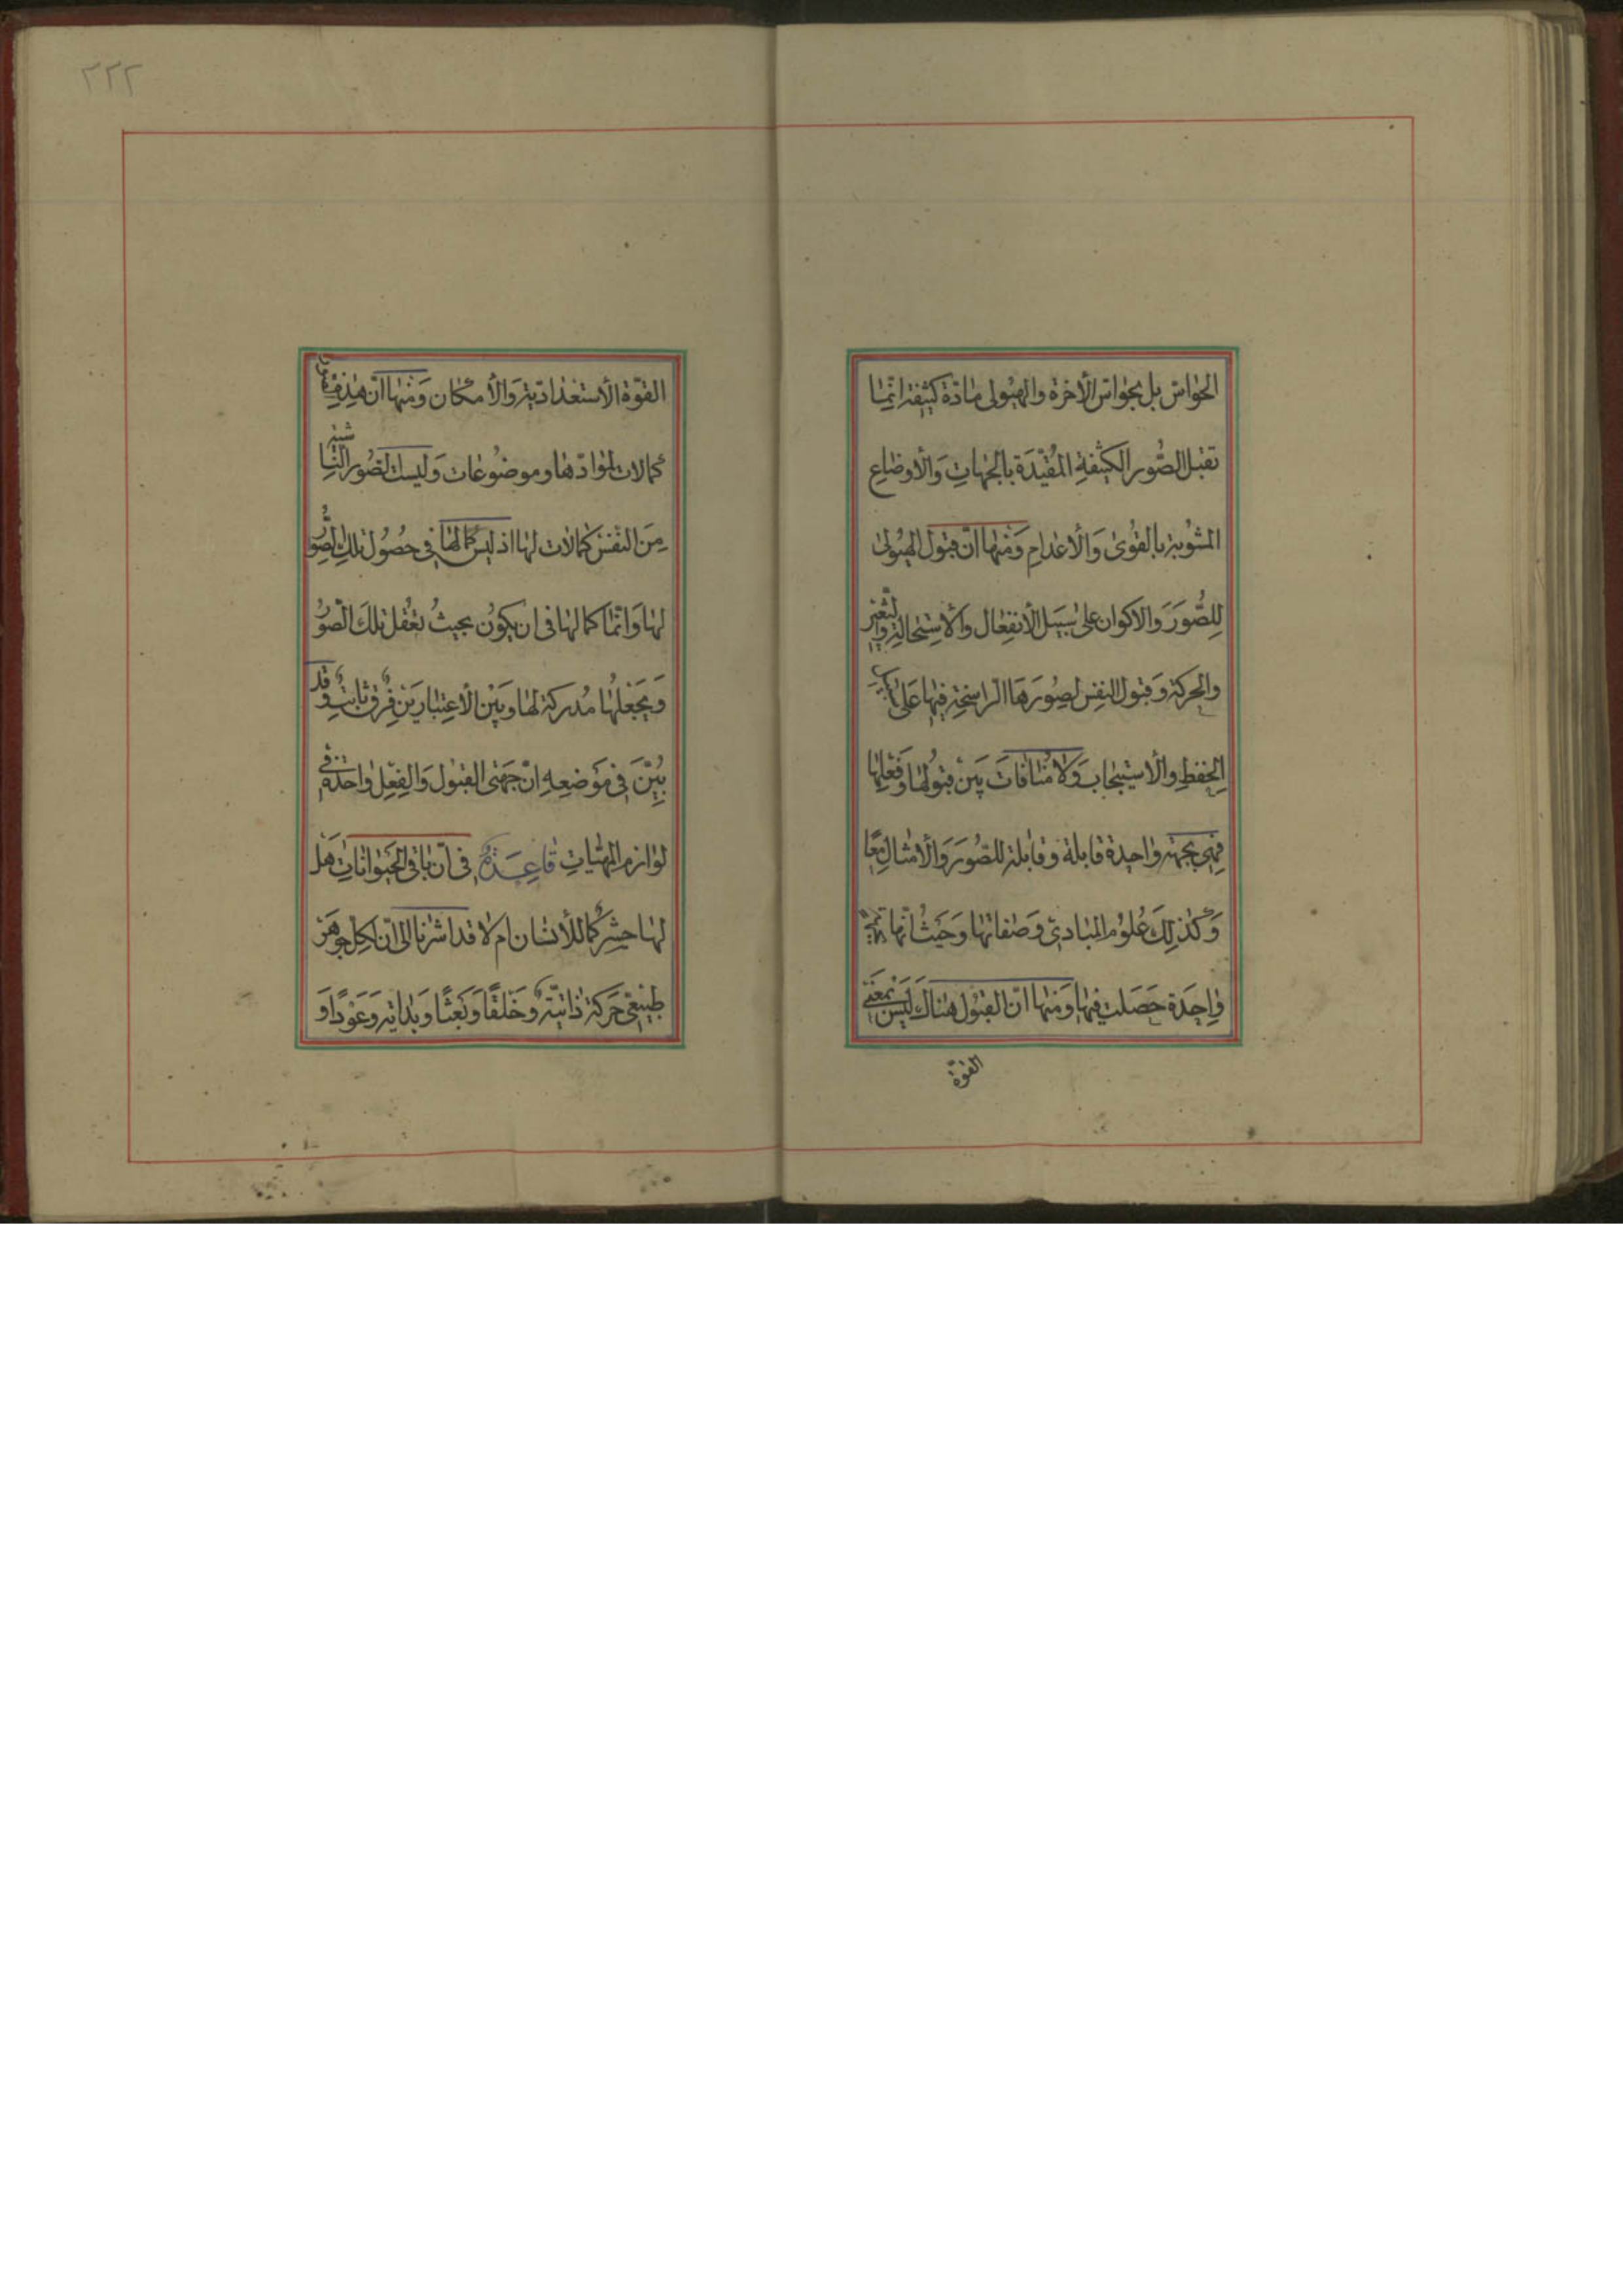 الحواسّ بل بحواسّ الأخرة والهيولى مادّة كثيفة انّما
تقبل الصُّور الكثيفةِ المُقيّدَة بالجهاتِ وَالأوضاعِ
المشوبة بالقوى وَالأعدامِ وَمنها انّ قبول الهيولى
لِلصُّوَرَ وَالاكوان على سَبيَل الأنفِعال وَالأستِحالةِ والتّغيّر
والحركة وَقبول النفسِ لصِوَرهَا الراسخةِ فيها عَلىٰ
الحِفظِ والأستيجاب وَلا مُنافات بَين قبولها وَفعلها
فهى بجهة واحِدة قابلة وَفاعلة للصُوَرَ وَالأمثال معًا
وَكذلِكَ عُلوُم المبَادىِ وَصفاتها وَحَيثُ انّها
واحِدَة حَصَلت فيها وَمنها انّ القبُول هناك لَيسَ بمعَنى
القوّة
٢٢٢
القوّة الأستعداديّة وَالأمكان وَمنها انّ هذِه
كمالات لموادّها وموضوُعات وَليست الصُور النّاشئة
مِنَ النفس كمالات لها اذ ليس كمالها في حصُول تلك الصّور
لها وَانّما كمالها فى ان يكوُن بحيثُ تعقُل تلكَ الصّورُ
وَيجَعلُها مُدركة لها وَبَيْن الأعِتبارَين فرق ثابت وقد
بُيِّنَ فى مَوضعِهِ انّ جهَتى القبول وَالفِعِل واحدة فى
لوَازم المهيّاتِ قاعِدَةٌ فى انّ باقى الحَيَوانات هَل
لها حشر كما للأنسان ام لا قد اشرنا الى انّ لكلِ جوهَر
طبيعىّ حَركة ذاتيّة وَخَلقًا وَبَعَثًا وَبَداية وَعَوْدًا وَ